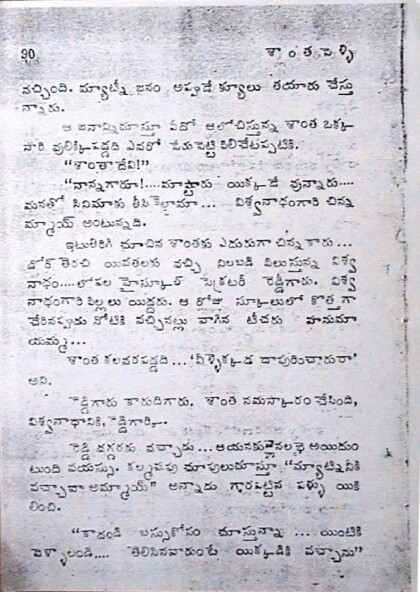 90 శాంత పెళ్ళి
వచ్చింది. మ్యాట్నీ జనం అప్పుడే క్యూలు తయారు చేస్తు
న్నారు.
ఆ జనాన్నిచూస్తూ ఏదో ఆలోచిస్తున్న శాంత ఒక్క
సారి వులిక్కిపడ్డది ఎవరో పేరుపెట్టి పిలిచేటప్పటికి.
“శాంతాదేవి!”
“నాన్నగారూ!....మాష్టారు యిక్కడే వున్నారు....
మనతో సినిమాకు తీసికెలామా... విశ్వనాధంగారి చిన్న
మ్మాయ్ అంటున్నది.
ఇటుతిరిగి చూచిన శాంతకు ఎదురుగా చిన్న కారు...
డోర్ తెరచి యివతలకు వచ్చి నిలబడి పిలుస్తున్న విశ్వ
నాధం....లోపల హైస్కూల్ సెక్రటరీ రెడ్డిగారు. విశ్వ
నాధంగారి పిల్లలు యిద్దరు. ఆ రోజు స్కూలులో కొత్తగా
చేరినప్పుడు నోటికి వచ్చినట్లు వాగిన టీచరు హనుమా
యమ్మ...
శాంత కలవరపడ్డది...‘వీళ్ళెక్కడ దాపురించారురా’
అని.
రెడ్డిగారు కారుదిగారు. శాంత నమస్కారం చేసింది,
విశ్వనాధానికి, రెడ్డిగారికి..
రెడ్డి దగ్గరకు వచ్చాడు...ఆయనకు అయిదుం
టుంది వయస్సు. కల్మషపు చూపులుచూస్తూ “మ్యాట్నీకి
వచ్చావా అమ్మాయ్” అన్నాడు గారపట్టిన పళ్ళు యికి
లించి.
“కాదండి బస్సుకోసం చూస్తున్నా...యింటికి
వెళ్ళాలండి.... తెలిసినవారుంటే యిక్కడికి వచ్చాను”